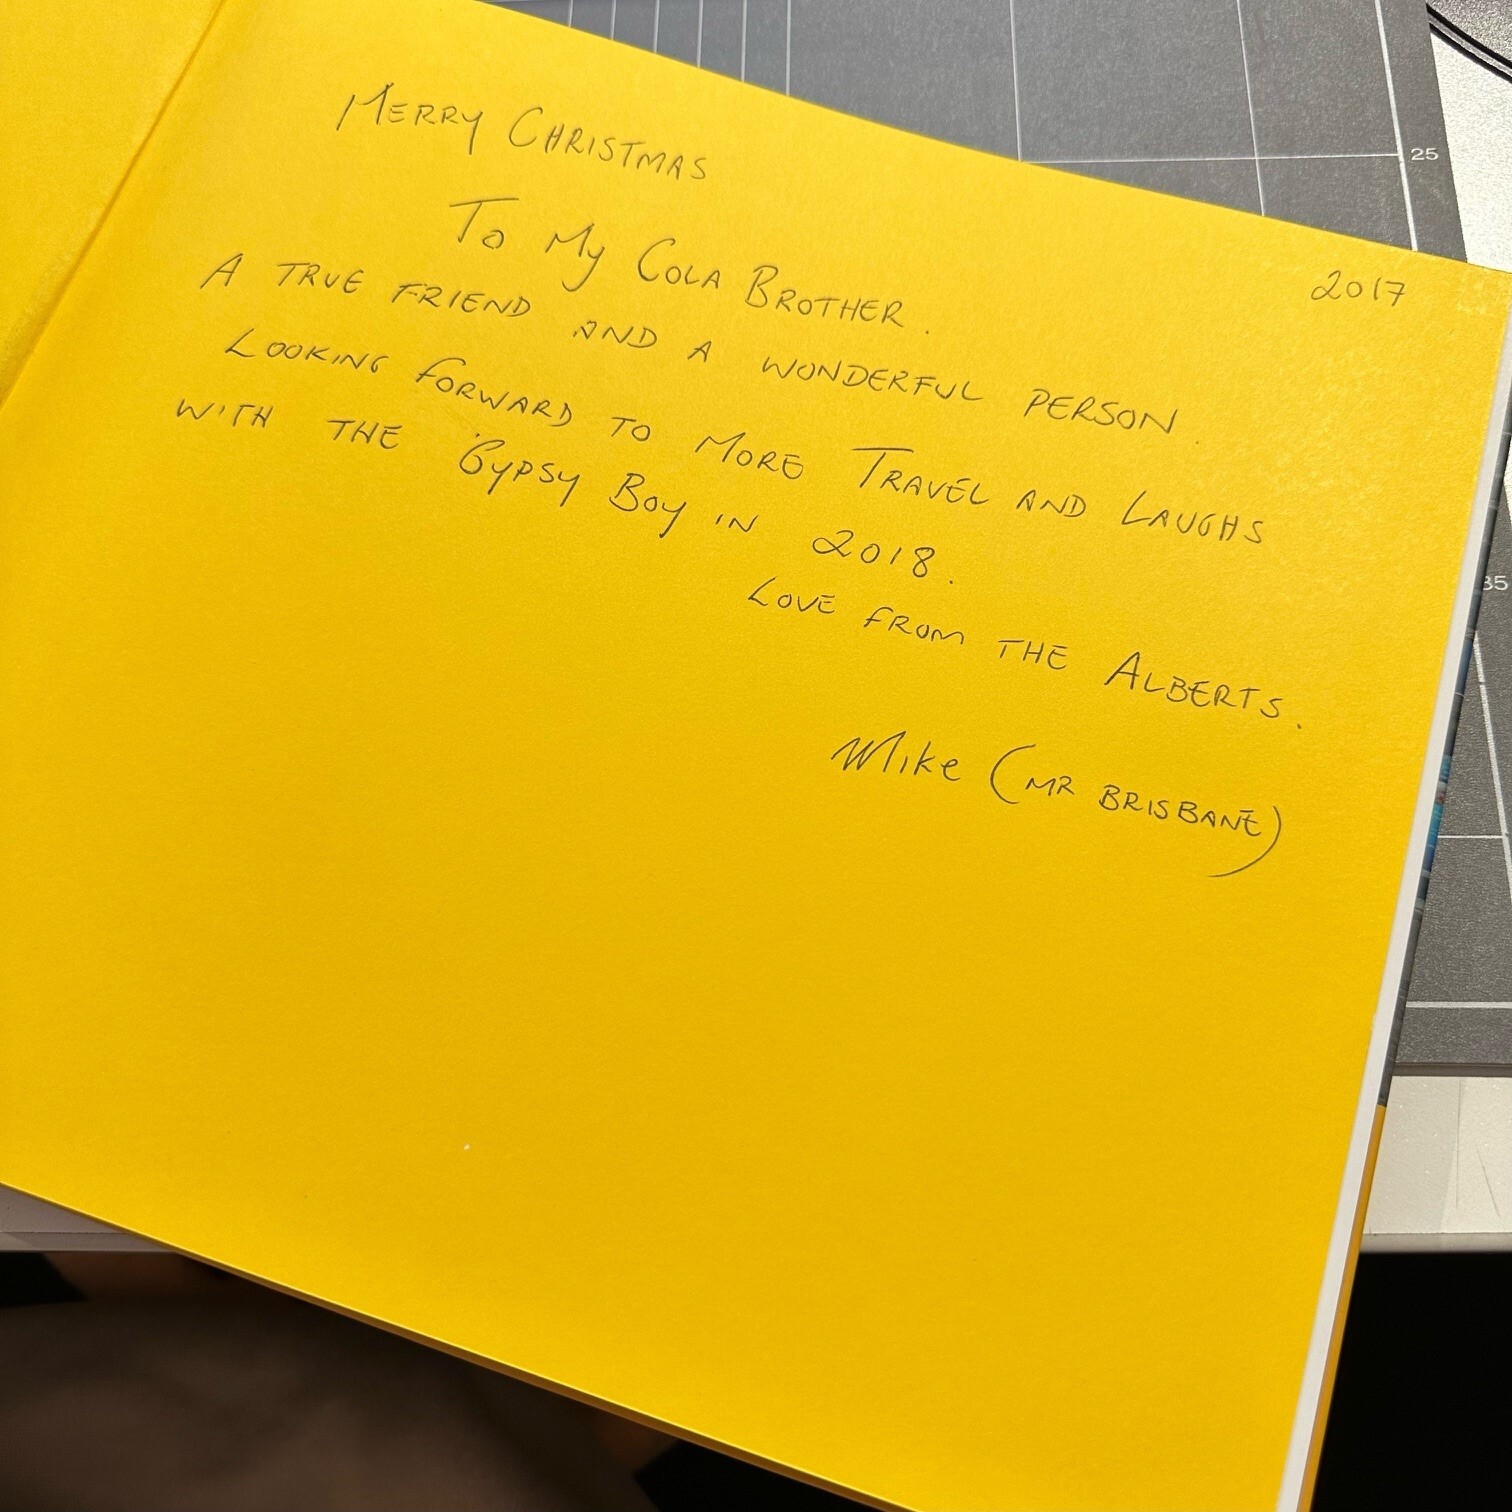 MERRY CHRISTMAS
2017
To My COLA BROTHER.
A TRUE FRIEND AND A WONDERFUL PERSON.
LOOKING FORWARD TO MORE TRAVEL AND LAUGHS
WITH THE GYPSY BOY IN 2018.
LOVE FROM THE ALBERTS.
Mike (MR BRISBANE)
25
35